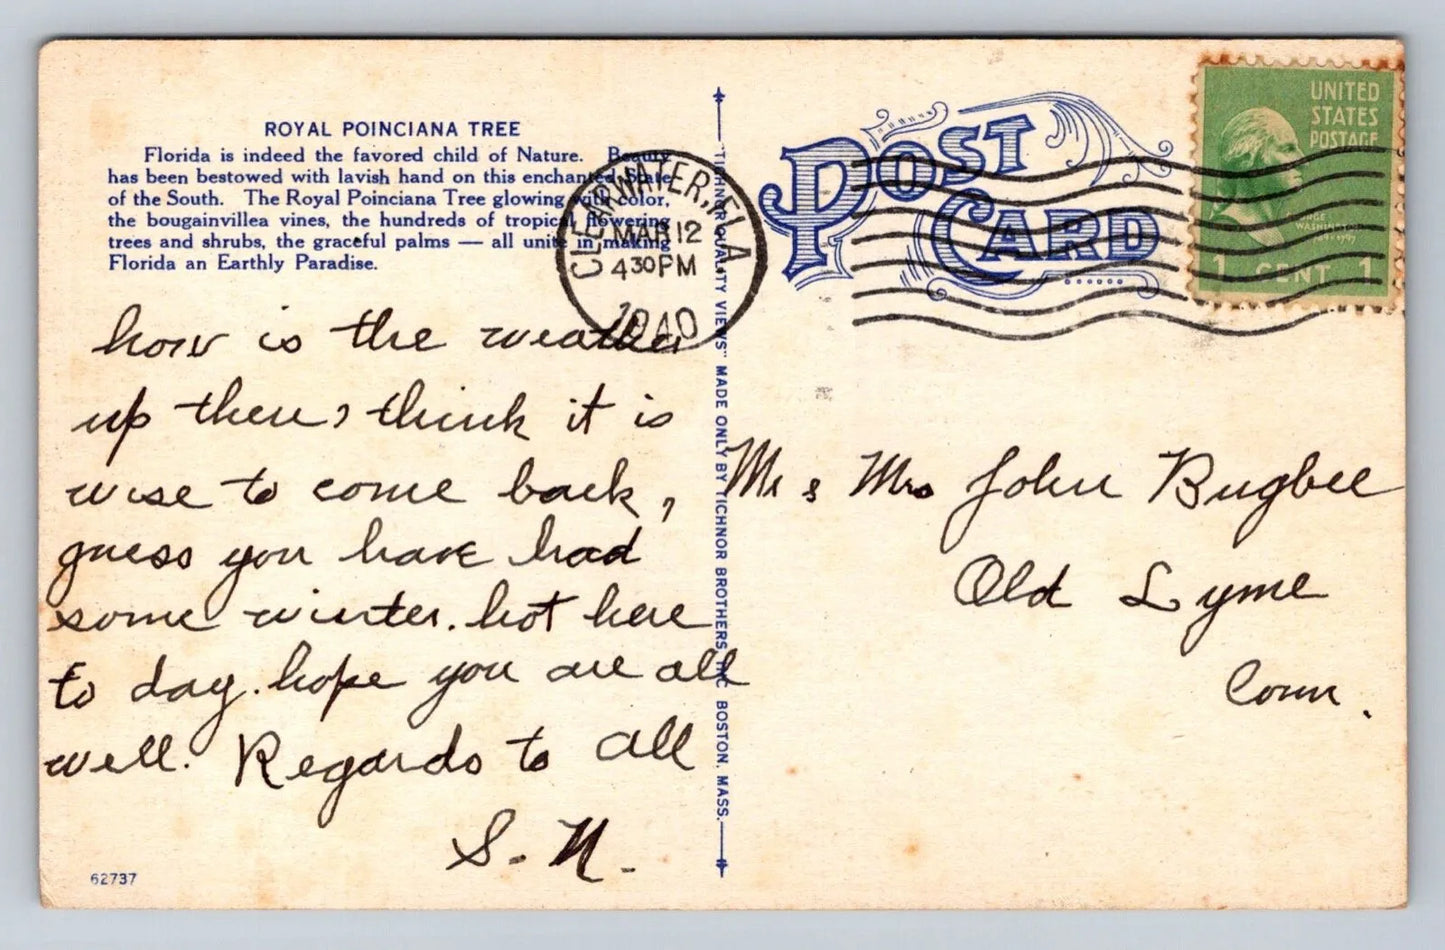 ROYAL POINCIANA TREE
Florida is indeed the favored child of Nature. Beauty
has been bestowed with lavish hand on this enchanted State
of the South. The Royal Poinciana Tree glowing with color,
the bougainvillea vines, the hundreds of tropical flowering
trees and shrubs, the graceful palms — all unite in making
Florida an Earthly Paradise.
how is the weather
up there, think it is
wise to come back,
guess you have had
some winter. hot here
to day. hope you are all
well. Regards to all
S. N.
62737
"TICHNOR QUALITY VIEWS" MADE ONLY BY TICHNOR BROTHERS INC BOSTON, MASS.
CLEARWATER, FLA
MAR 12
4 30 PM
1940
POST
CARD
UNITED
STATES
POSTAGE
GEORGE
WASHINGTON
1 CENT 1
Mr & Mrs John Bugbee
Old Lyme
Conn.